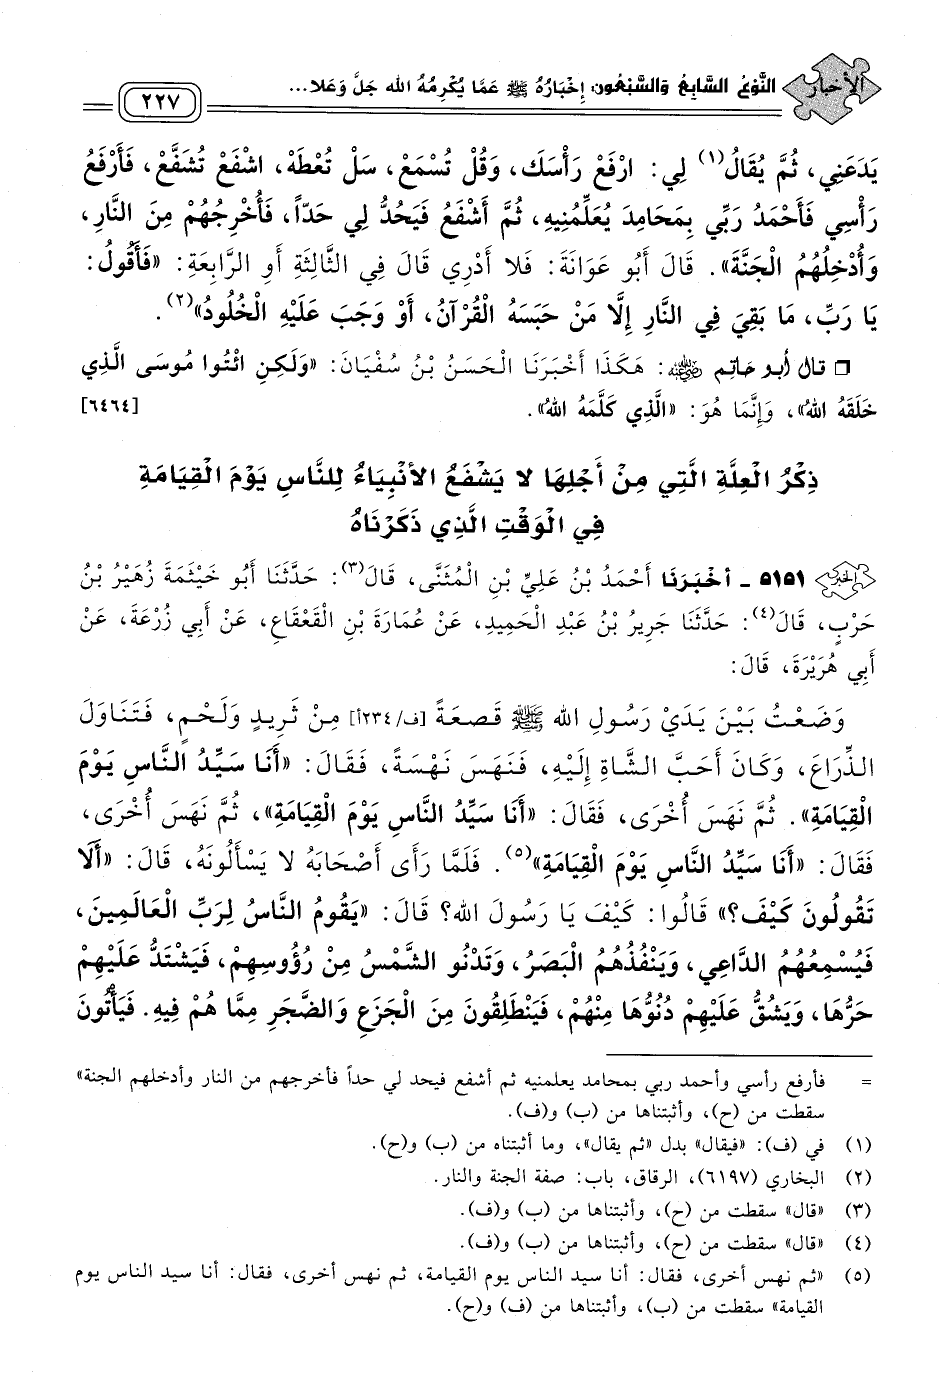 الأخبار
النَّوْعُ السَّابِعُ وَالسَّبْعُونَ: إِخْبَارُهُ ﷺ عَمَّا يُكْرِمُهُ الله جَلَّ وَعَلا...
٢٢٧
يَدَعَنِي، ثُمَّ يُقَالُ(١) لِي: ارْفَعْ رَأْسَكَ، وَقُلْ تُسْمَعْ، سَلْ تُعْطَهْ، اشْفَعْ تُشَفَّعْ، فَأَرْفَعُ
رَأْسِي فَأَحْمَدُ رَبِّي بِمَحَامِدَ يُعَلِّمُنِيهِ، ثُمَّ أَشْفَعُ فَيَحُدُّ لِي حَدّاً، فَأُخْرِجُهُمْ مِنَ النَّارِ،
وَأُدْخِلُهُمُ الْجَنَّةَ». قَالَ أَبُو عَوَانَةَ: فَلا أَدْرِي قَالَ فِي الثَّالِثَةِ أَوِ الرَّابِعَةِ: «فَأَقُولُ:
يَا رَبِّ، مَا بَقِيَ فِي النَّارِ إِلَّا مَنْ حَبَسَهُ الْقُرْآنُ، أَوْ وَجَبَ عَلَيْهِ الْخُلُودُ»(٢).
❑ قال أبو حاتم ﵁: هَكَذَا أَخْبَرَنَا الْحَسَنُ بْنُ سُفْيَانَ: «وَلَكِنِ ائْتُوا مُوسَى الَّذِي
خَلَقَهُ اللهُ»، وَإِنَّمَا هُوَ: «الَّذِي كَلَّمَهُ اللهُ». [٦٤٦٤]
ذِكْرُ الْعِلَّةِ الَّتِي مِنْ أَجْلِهَا لا يَشْفَعُ الأَنْبِيَاءُ لِلنَّاسِ يَوْمَ الْقِيَامَةِ
فِي الْوَقْتِ الَّذِي ذَكَرْنَاهُ
الخبر ٥١٥١ - أَخْبَرَنَا أَحْمَدُ بْنُ عَلِيِّ بْنِ الْمُثَنَّى، قَالَ(٣): حَدَّثَنَا أَبُو خَيْثَمَةَ زُهَيْرُ بْنُ
حَرْبٍ، قَالَ(٤): حَدَّثَنَا جَرِيرُ بْنُ عَبْدِ الْحَمِيدِ، عَنْ عُمَارَةَ بْنِ الْقَعْقَاعِ، عَنْ أَبِي زُرْعَةَ، عَنْ
أَبِي هُرَيْرَةَ، قَالَ:
وَضَعْتُ بَيْنَ يَدَيْ رَسُولِ الله ﷺ قَصعَةً [ف/٢٣٤أ] مِنْ ثَرِيدٍ وَلَحْمٍ، فَتَنَاوَلَ
الذِّرَاعَ، وَكَانَ أَحَبَّ الشَّاةِ إِلَيْهِ، فَنَهَسَ نَهْسَةً، فَقَالَ: «أَنَا سَيِّدُ النَّاسِ يَوْمَ
الْقِيَامَةِ». ثُمَّ نَهَسَ أُخْرَى، فَقَالَ: «أَنَا سَيِّدُ النَّاسِ يَوْمَ الْقِيَامَةِ»، ثُمَّ نَهَسَ أُخْرَى،
فَقَالَ: «أَنَا سَيِّدُ النَّاسِ يَوْمَ الْقِيَامَةِ»(٥). فَلَمَّا رَأَى أَصْحَابَهُ لا يَسْأَلُونَهُ، قَالَ: «أَلَا
تَقُولُونَ كَيْفَ؟» قَالُوا: كَيْفَ يَا رَسُولَ الله؟ قَالَ: «يَقُومُ النَّاسُ لِرَبِّ الْعَالَمِينَ،
فَيُسْمِعُهُمُ الدَّاعِي، وَيَنْفُذُهُمُ الْبَصَرُ، وَتَدْنُو الشَّمْسُ مِنْ رُؤُوسِهِمْ، فَيَشْتَدُّ عَلَيْهِمْ
حَرُّهَا، وَيَشُقُّ عَلَيْهِمْ دُنُوُّهَا مِنْهُمْ، فَيَنْطَلِقُونَ مِنَ الْجَزَعِ وَالضَّجَرِ مِمَّا هُمْ فِيهِ. فَيَأْتُونَ
= فأرفع رأسي وأحمد ربي بمحامد يعلمنيه ثم أشفع فيحد لي حداً فأخرجهم من النار وأدخلهم الجنة»
سقطت من (ح)، وأثبتناها من (ب) و(ف).
(١) في (ف): «فيقال» بدل «ثم يقال»، وما أثبتناه من (ب) و(ح).
(٢) البخاري (٦١٩٧)، الرقاق، باب: صفة الجنة والنار.
(٣) «قال» سقطت من (ح)، وأثبتناها من (ب) و(ف).
(٤) «قال» سقطت من (ح)، وأثبتناها من (ب) و(ف).
(٥) «ثم نهس أخرى، فقال: أنا سيد الناس يوم القيامة، ثم نهس أخرى، فقال: أنا سيد الناس يوم
القيامة» سقطت من (ب)، وأثبتناها من (ف) و(ح).